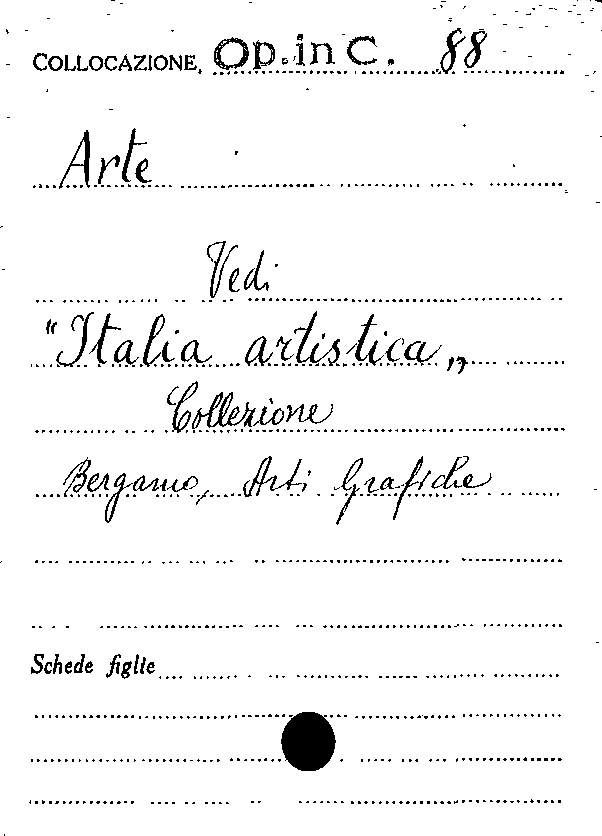 COLLOCAZIONE Op. in C. 88
Arte
Vedi
"Italia artistica„
Collezione
Bergamo, Arti Grafiche
Schede figlie